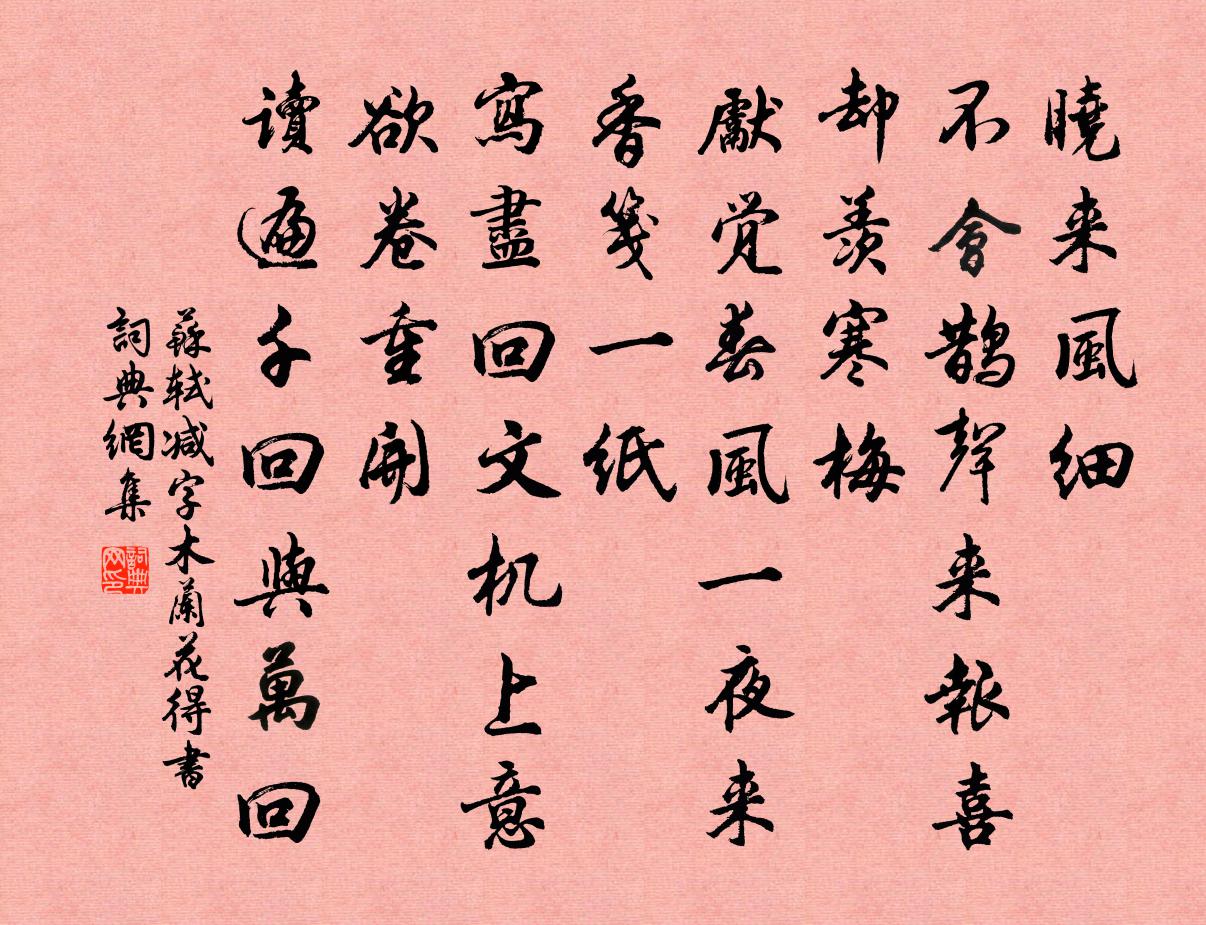 曉来風細
不會鹊聲来報喜
却羨寒梅
獻觉春風一夜来
香箋一紙
寫盡回文机上意
欲卷重開
讀遍千回與萬回
蘇軾减字木蘭花得書
詞典網集
詞典网印